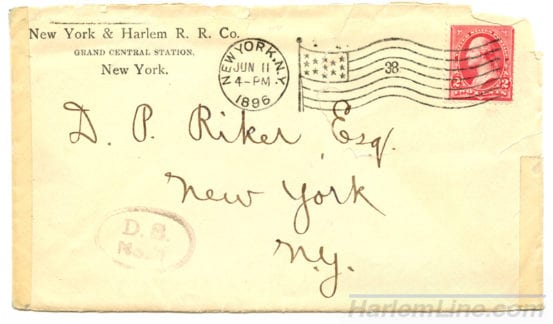 New York & Harlem R. R. Co.
GRAND CENTRAL STATION,
New York.
NEW YORK, N.Y.
JUN 11
4-PM
1896
38
2 2
TWO CENTS
D. P. Riker Esq.
New York
N.Y.
D. S.
HarlemLine.com